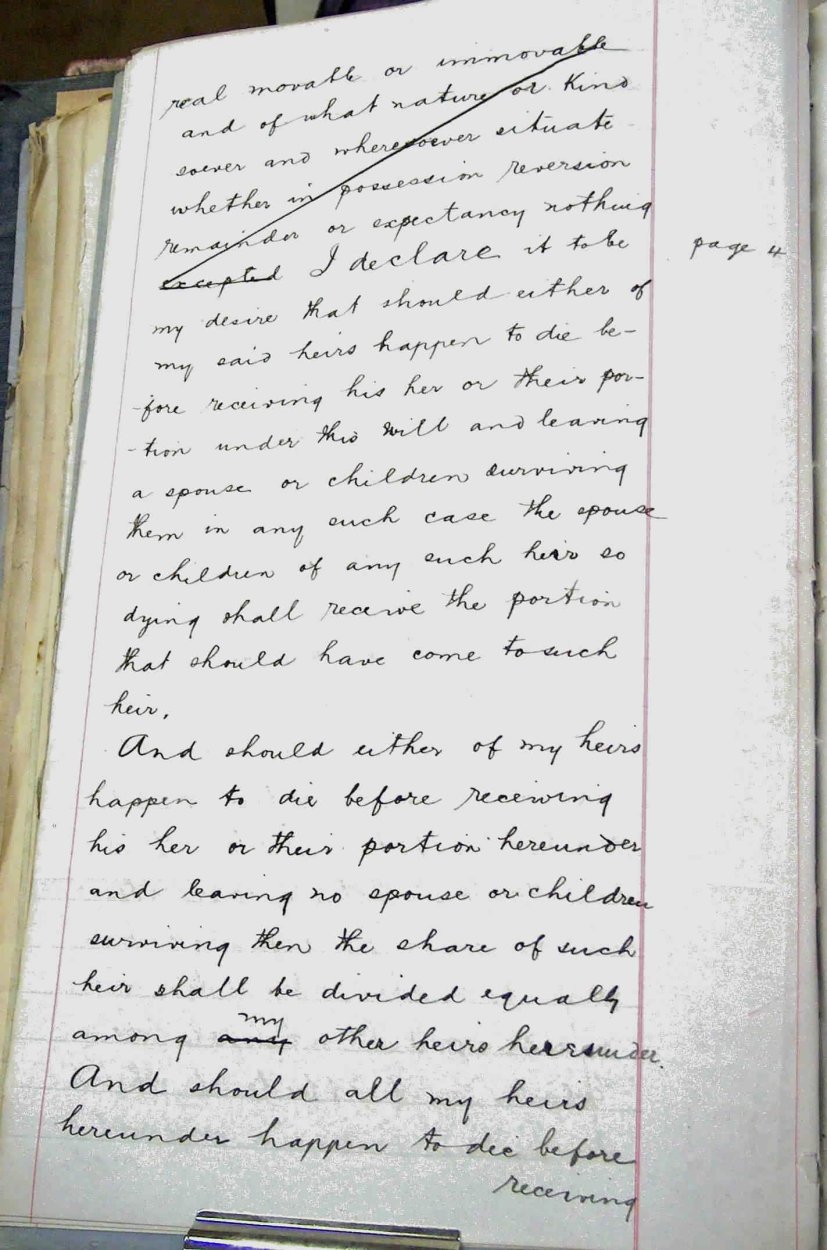 real movable or immovable
and of what nature or kind
soever and wheresoever situate
whether in possession reversion
remainder or expectancy nothing
excepted I declare it to be
page 4
my desire that should either of
my said heirs happen to die be-
-fore receiving his her or their por-
-tion under this will and leaving
a spouse or children surviving
them in any such case the spouse
or children of any such heir so
dying shall receive the portion
that should have come to such
heir.
And should either of my heirs
happen to die before receiving
his her or their portion hereunder
and leaving no spouse or children
surviving then the share of such
heir shall be divided equally
my
among any other heirs hereunder.
And should all my heirs
hereunder happen to die before
receiving